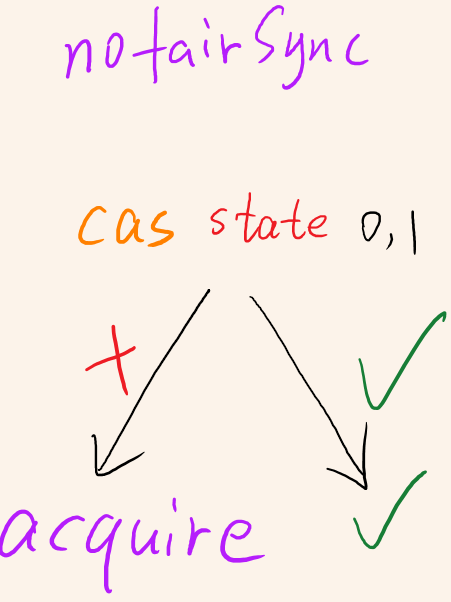 nofairSync
cas state 0,1
acquire